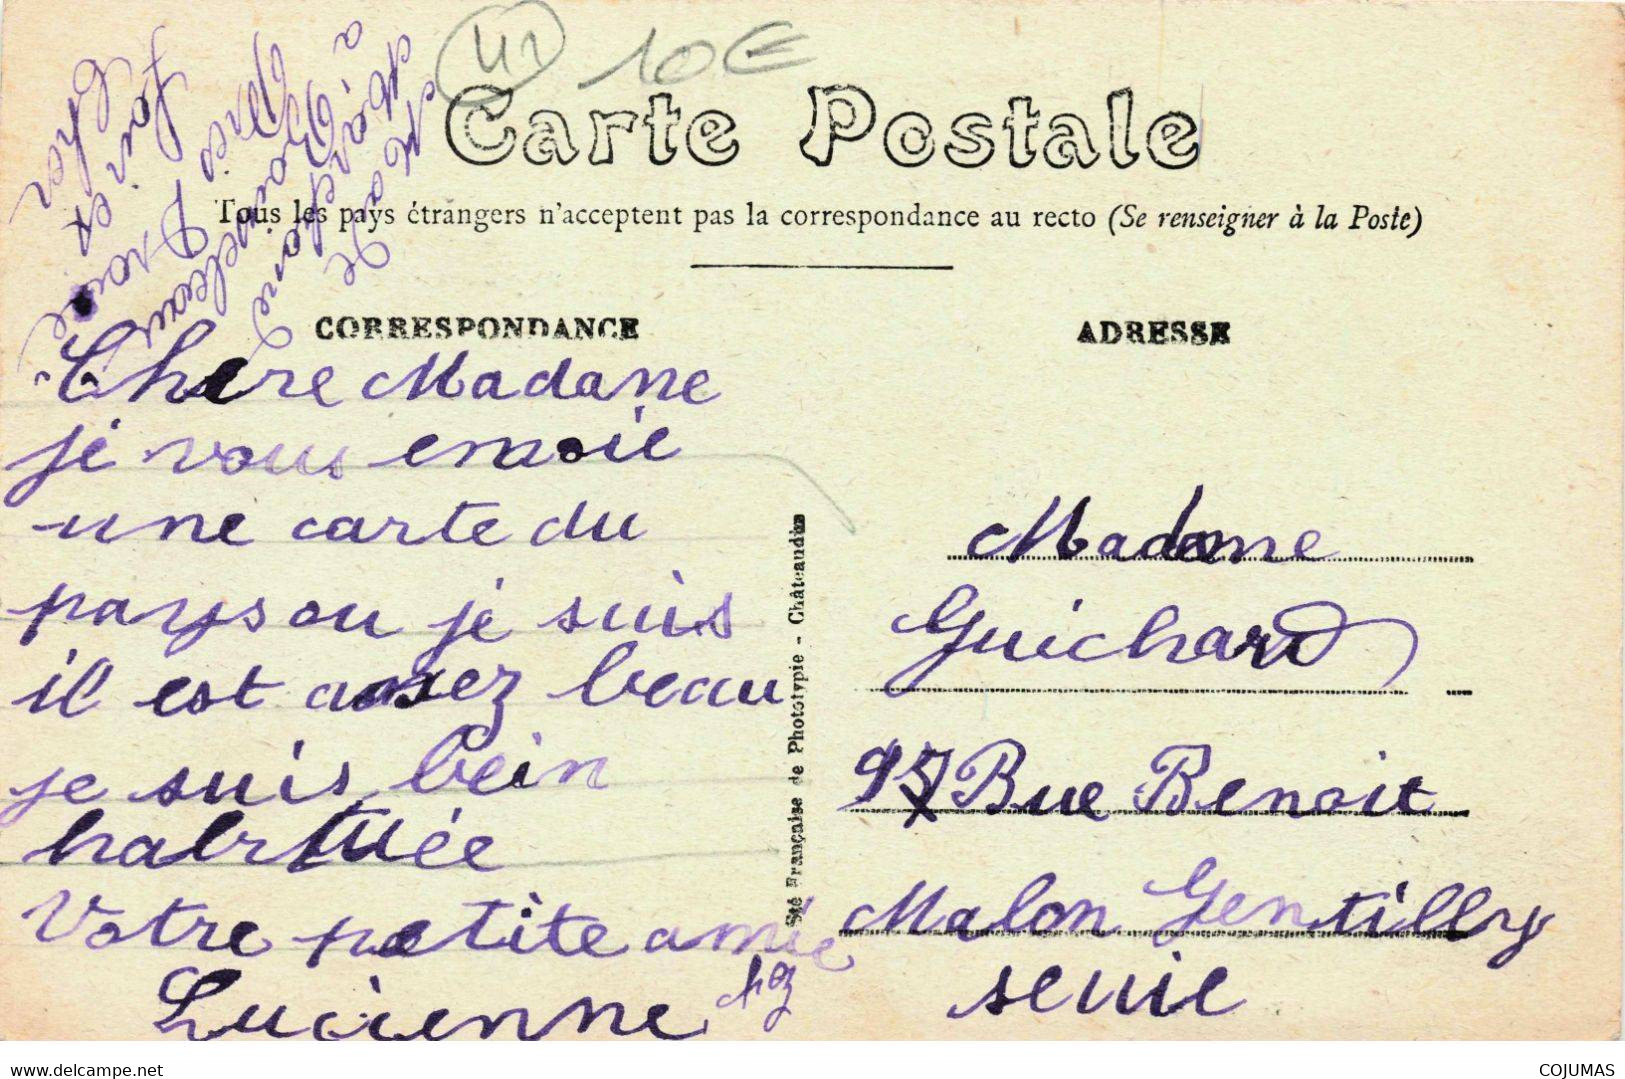 41 10€
Carte Postale
Tous les pays étrangers n'acceptent pas la correspondance au recto (Se renseigner à la Poste)
CORRESPONDANCE
ADRESSE
Chere Madane
je vous envoie
une carte du
pays ou je suis
il est assez beau
je suis bein
habituée
Votre petite amie
Lucienne
chez
Marchand
à
Loir et
Cher
Sté Française de Phototypie - Châteaudun
Madame
Guichard
97 Rue Benoit
Malon Gentilly
seine
www.delcampe.net
COJUMAS